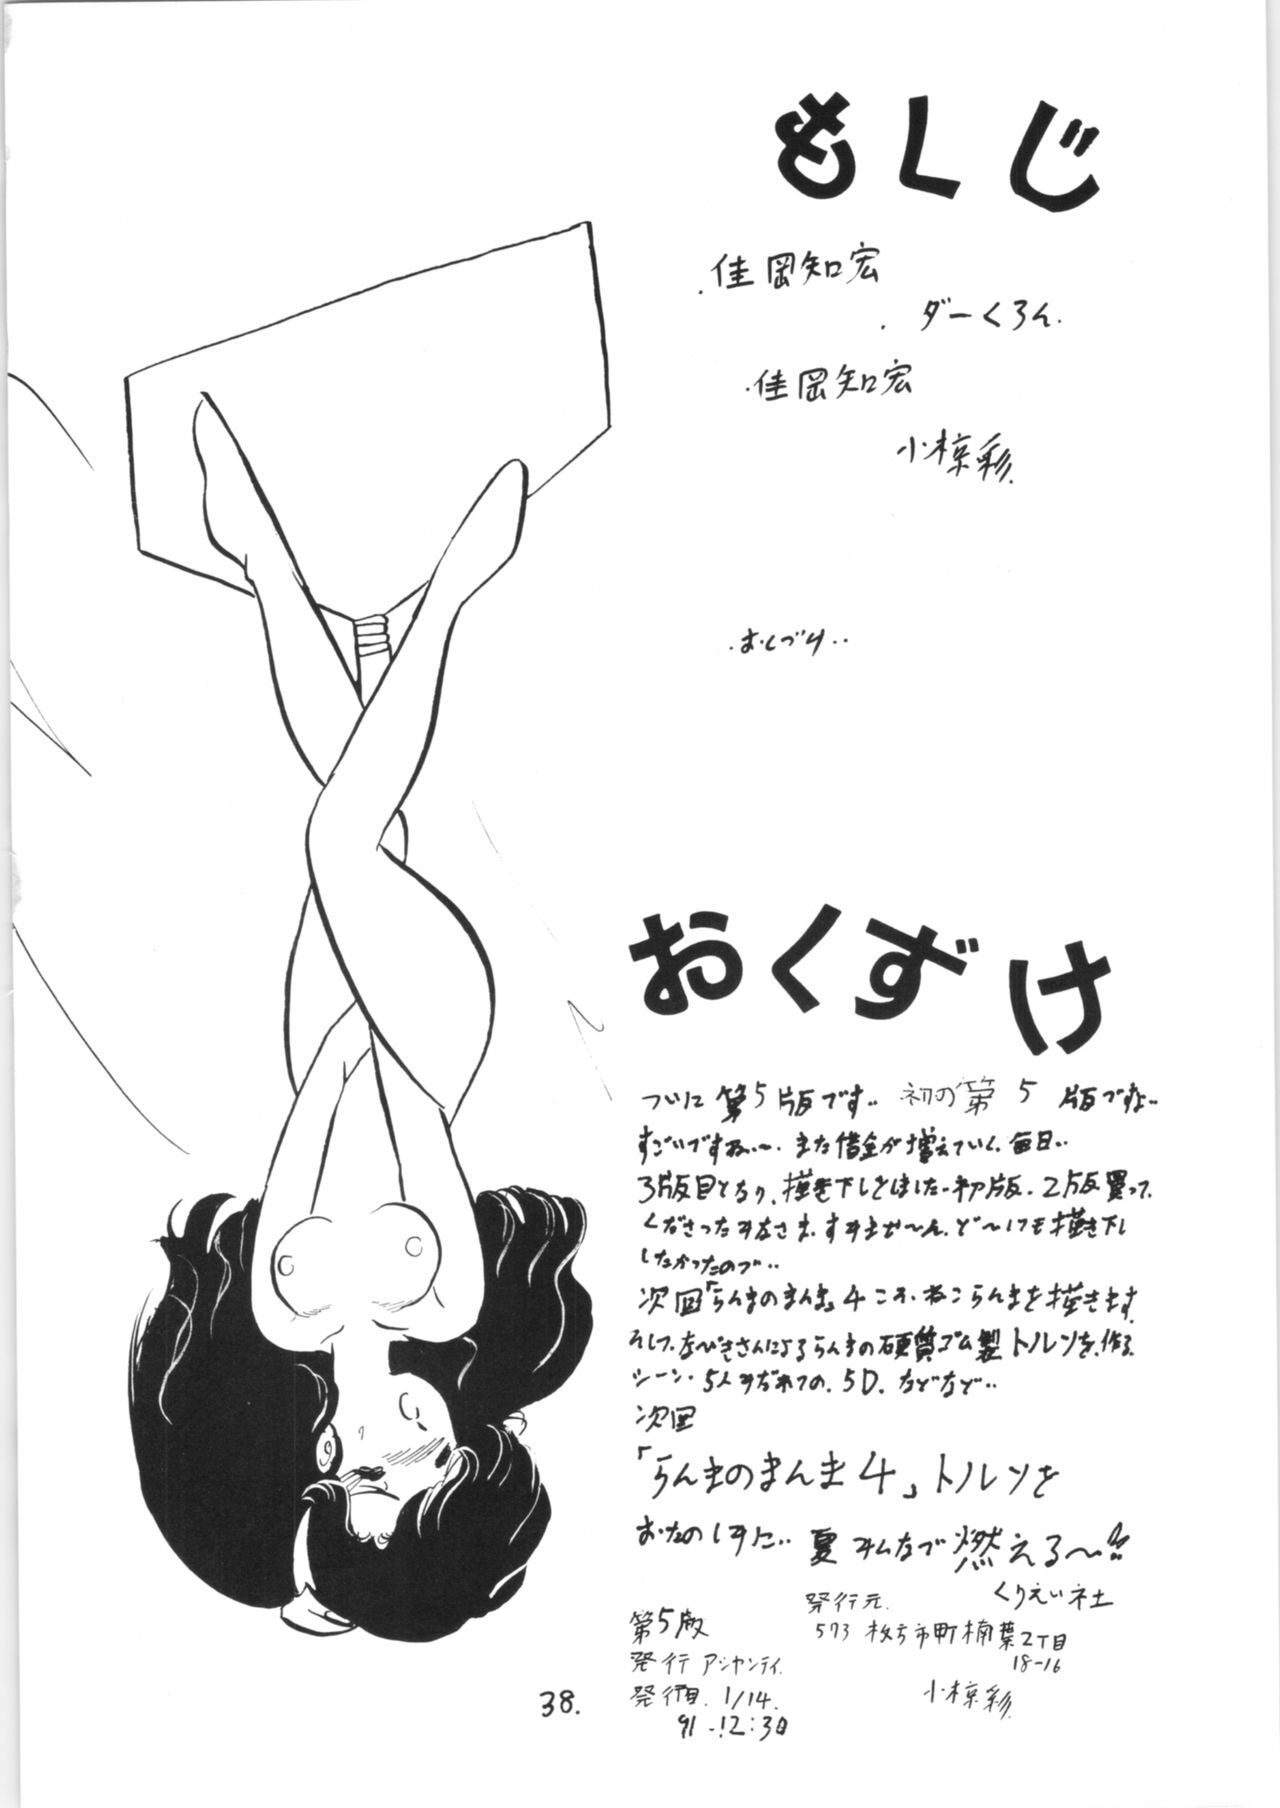 もくじ
・佳岡知宏
・ダーくろん.
・佳岡知宏
小椋彩.
・おくづけ・・
おくずけ
ついに第5版です・・初の第5版ですね・・
すごいですね〜・また借金が増えていく、毎日・・
3版目となり、描き下しをしました・初版・2版買って、
くださったみなさま、すみませ〜ん、ど〜しても描き下し
したかったので・・
次回「らんまのまんま」4こそ、ねこらんまを描きます、
そして、なびきさんによるらんまの硬質ゴム製トルソを、作る、
シーン・5人みだれての、5D、などなど・・
次回
「らんまのまんま4」トルソを
おたのしみに・・夏みんなで燃える〜!!
第5版
発行 アシャンティ.
発行日. 1/14.
91.-12:30
発行元. くりえい社
573 枚方市町楠葉2丁目
18-16
小椋彩.
38.